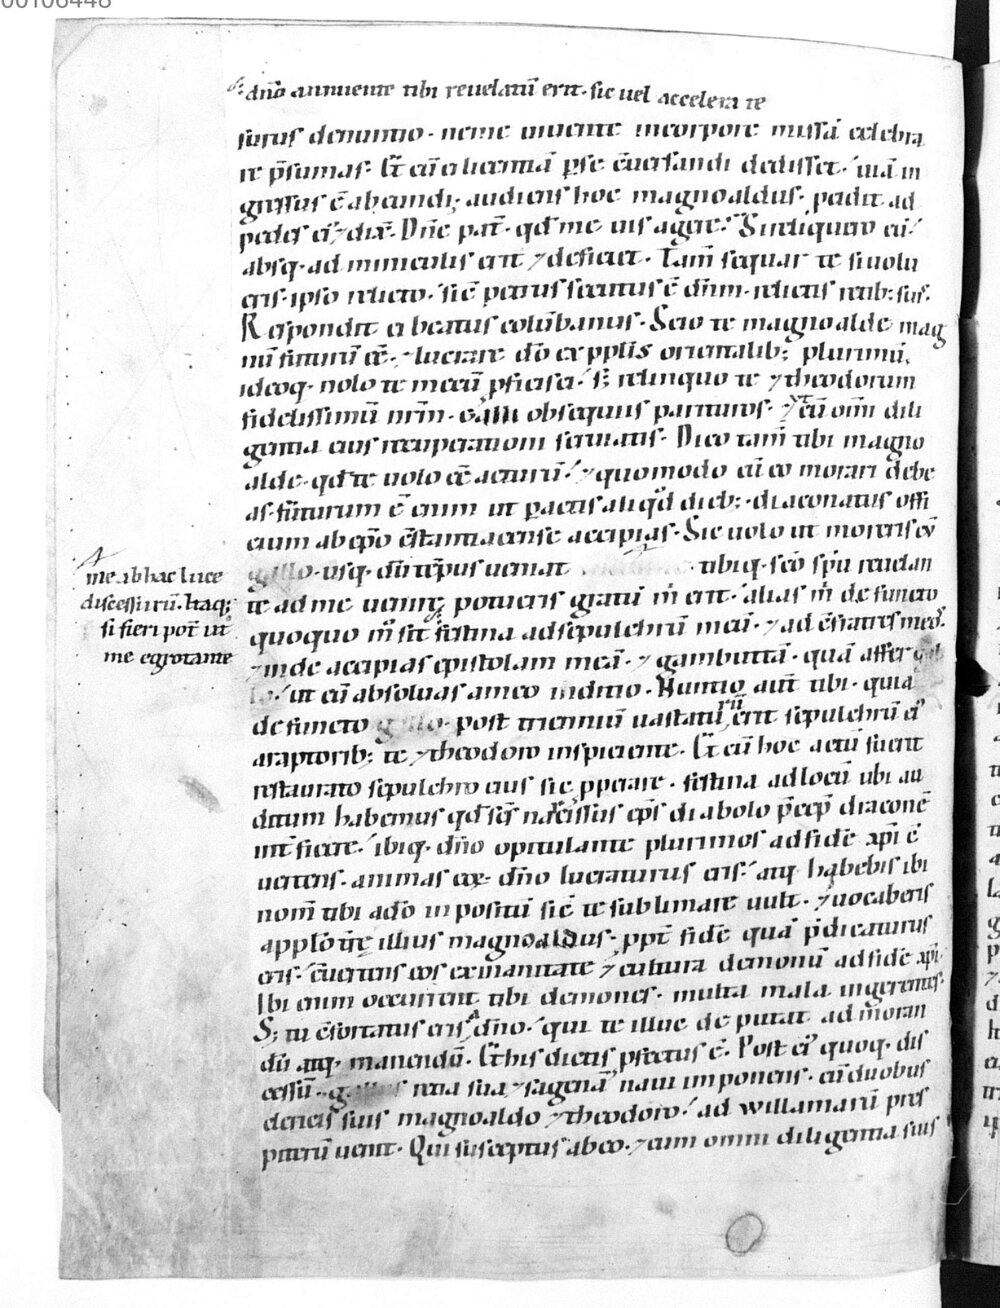 00106448
dño annuente tibi reuelatũ erit · sic uel accelera te
surus denuntio · neme uiuente incorpore missã celebra
re p̃sumas · Et cũ ei licentiã ꝑse cõuersandi dedisset · uiã in
gressus ẽ abeundi; audiens hoc magnoaldus · cecidit ad
pedes ei' ⁊ dix̃ · Dñe pat̃ · qđ me uis agere · Si reliquero eũ ·
absq · ad miniculis erit ⁊ deficiet · Tam̃ sequar te si uolu
eris · ipso relicto · sic petrus secutus ẽ dñm · relictis retib; suis ·
Respondit ei beatus colũbanus · Scio te magnoalde mag
nũ futurũ ẽe · ⁊ lucrare dõ ex ppłis orientalib; plurimũ ·
ideoq · nolo te mecũ pficisci · s; relinquo te ⁊ theodorum
fidelissimũ nr̃m · galli obsequiis parituros · ⁊ cũ omĩ dili
gentia eius recuperationi seruatis · Dico tam̃ tibi magno
alde · qđ te uolo ẽe acturũ · ⁊ quomodo cũ eo morari debe
as · futurum ẽ enim ut ꝑactis aliqđ dieb; · diaconatus offi
cium ab ep̃o cõstantiacense accipias · Sic uolo ut moreris cũ
gallo · usq · dũ tẽpus ueniat tibiq · sc̃o sp̃u reuelan
te ad me uenire potueris gratũ m̃ erit · alias m̃ defuncto
quoquo m̊ sit festina ad sepulchrũ meũ · ⁊ ad cõfratres meos ·
⁊ inde accipias epistolam meã · ⁊ gambuttã · quã affer gal
lo · ut eũ absoluas a meo inditio · Nuntio aut̃ tibi · quia
defuncto gallo · post trienniũ uastatũ erit sepulchrũ ei'
araptorib; te ⁊ theodoro inspiciente · Et cũ hoc actũ fuerit
restaurato sepulchro eius sic pperare · festina ad locũ ubi au
ditum habemus qđ sc̃s narcissus ep̃s diabolo p̃cep̃ diaconẽ
int̃ficere · ibiq · dño opitulante plurimos ad fidẽ xp̃i cõ
uertens · animas eoꝝ dño lucraturus eris · atq habebis ibi
nom̃ tibi a dõ inpositũ sic te sublimare uult · ⁊ uocaberis
appłs t̃rę illius magnoaldus · ppt̃ fidẽ quã p̃dicaturus
eris · cõuertens eos ex uanitate ⁊ cultura demonũ ad fidẽ xp̃i ·
Ibi enim occurrent tibi demones · multa mala ingerentes ·
S; tu cõfortatus eris a dño · qui te illuc deputat ad moran
dũ atq · manendũ · Et his dictis pfectus ẽ · Post ei' quoq · dis
cessũ · gallus retia sua ⁊ sagenã naui imponens · cũ duobus
clericis suis magnoaldo ⁊ theodoro · ad willamarũ pres
piterũ uenit · Qui susceptus ab eo · ⁊ cum omni diligentia suis
me ab hac luce
discessurũ · Itaq;
si fieri pot̃ ut
me egrotante